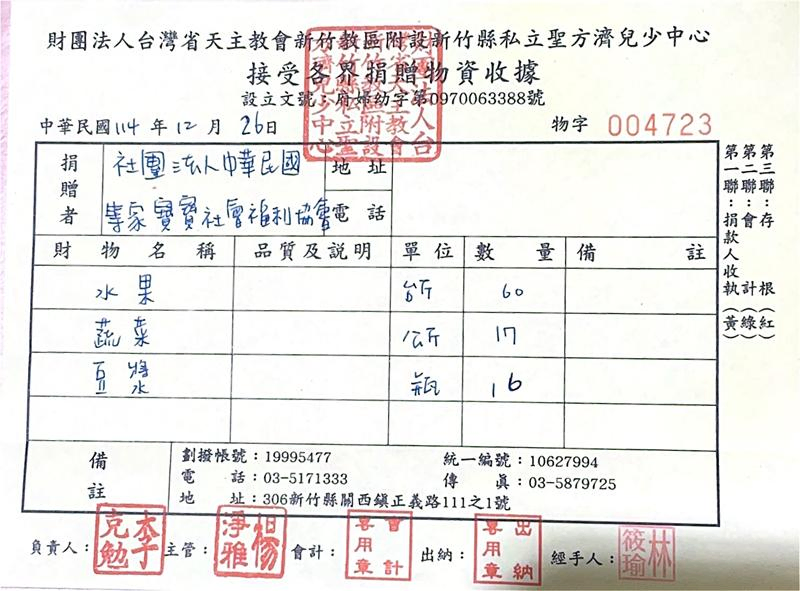 財團法人台灣省天主教會新竹教區附設新竹縣私立聖方濟兒少中心
接受各界捐贈物資收據
設立文號：府婦幼字第0970063388號
中華民國114年12月26日 物字 004723
捐贈者 社團法人中華民國 地址
專家寶寶社會福利協會 電話
財物名稱 品質及說明 單位 數量 備註
水果 台斤 60
蔬菜 公斤 17
豆漿水 瓶 16
備註
劃撥帳號：19995477 統一編號：10627994
電話：03-5171333 傳真：03-5879725
地址：306新竹縣關西鎮正義路111之1號
負責人：李克勉 主管：楊淨雅 會計：會計專用章 出納：出納專用章 經手人：林筱瑜
第一聯：捐款人收執（黃）
第二聯：會計（綠）
第三聯：存根（紅）